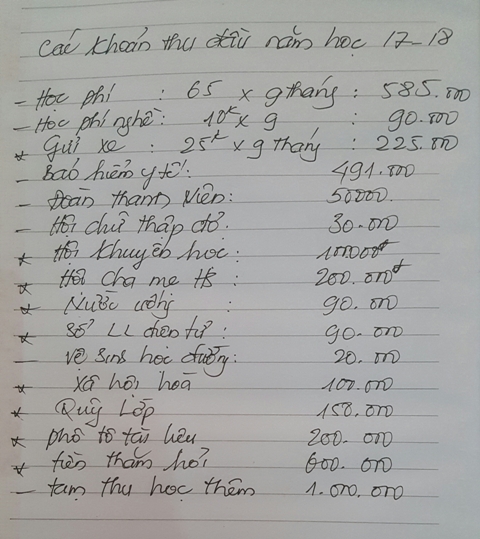 Các khoản thu đầu năm học 17-18
- Học phí : 65 x 9 tháng : 585.000
- Học phí nghề : 10k x 9 : 90.000
* Gửi xe : 25k x 9 tháng : 225.000
- Bảo hiểm y tế : 491.000
- Đoàn thanh niên : 50000.
- Hội chữ thập đỏ. 30.000
* Hội khuyến học : 100.000đ
* Hội cha mẹ HS : 200.000đ
* Nước uống : 90.000
* Sổ LL điện tử : 90.000
- Vệ sinh học đường : 20.000
* xã hội hoá 100.000
* Quỹ Lớp 150.000
* phô tô tài liệu 200.000
* tiền thăm hỏi 600.000
- tạm thu học thêm 1.000.000